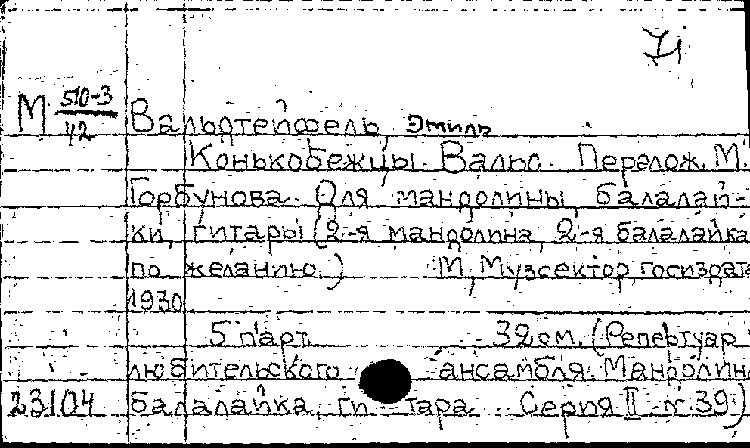 71
М 510-3
42
Вальдтейфель, Эмиль
Конькобежцы. Вальс. Перелож. М.
Горбунова. Для мандолины, балалай-
ки, гитары (2-я мандолина, 2-я балалайка
по желанию.) М, Музсектор госиздата
1930
5 парт. 32 см. (Репертуар
любительского ансамбля. Мандолина
балалайка, ги тара. Серия II № 39.)
23104